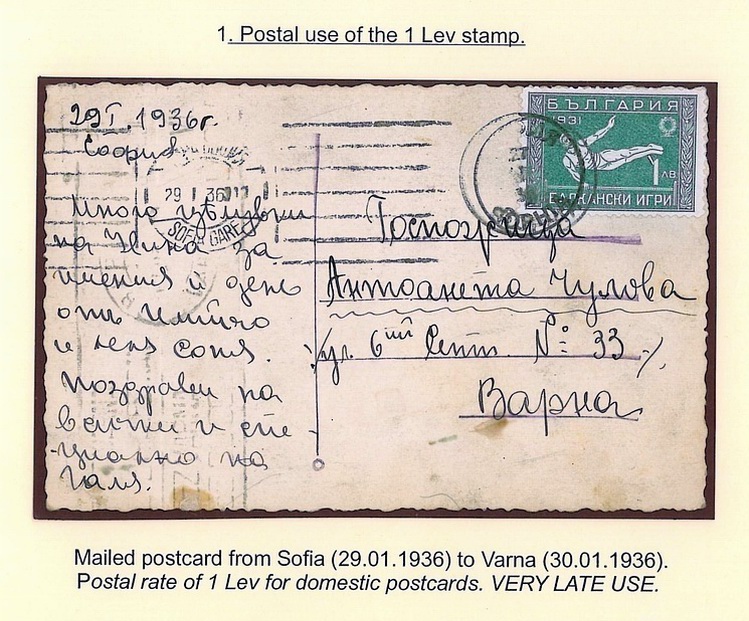 1. Postal use of the 1 Lev stamp.
29 I. 1936 г.
София
29 I 36 17
SOFIA GARE
БЪЛГАРИЯ
1931
1 ЛВ
БАЛКАНСКИ ИГРИ
Много целувки
на Нина за
имения и день
отъ
и леля Соня.
Поздрави на
всички и спе-
циално на
Галя.
Госпожица
Антоанета Чулова
ул. 6ий Септ. № 33
Варна
Mailed postcard from Sofia (29.01.1936) to Varna (30.01.1936).
Postal rate of 1 Lev for domestic postcards. VERY LATE USE.